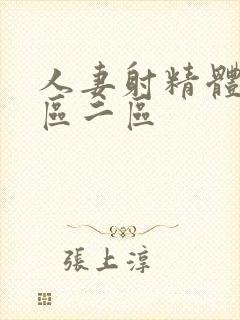 人妻射精體
區二區
張上淳